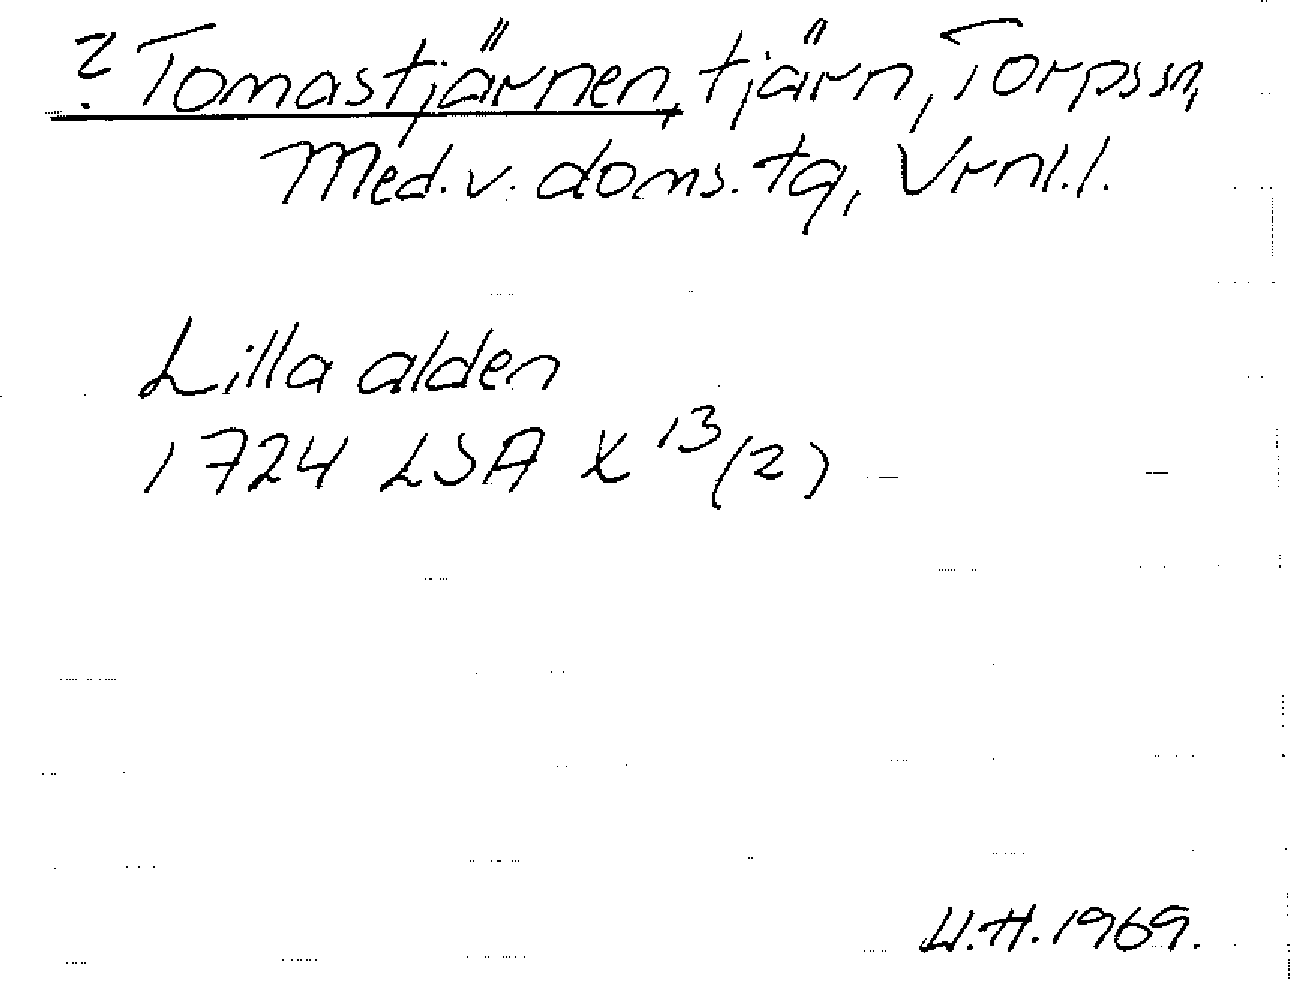 ? Tomastjärnen, tjärn, Torps sn,
Med. v. doms. tg, Vrnl. l.
Lilla alden
1724 LSA X 13 (2) — —
U.H. 1969.